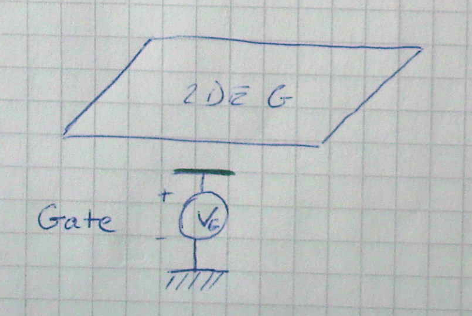 2DEG
+
Gate
V_G
-